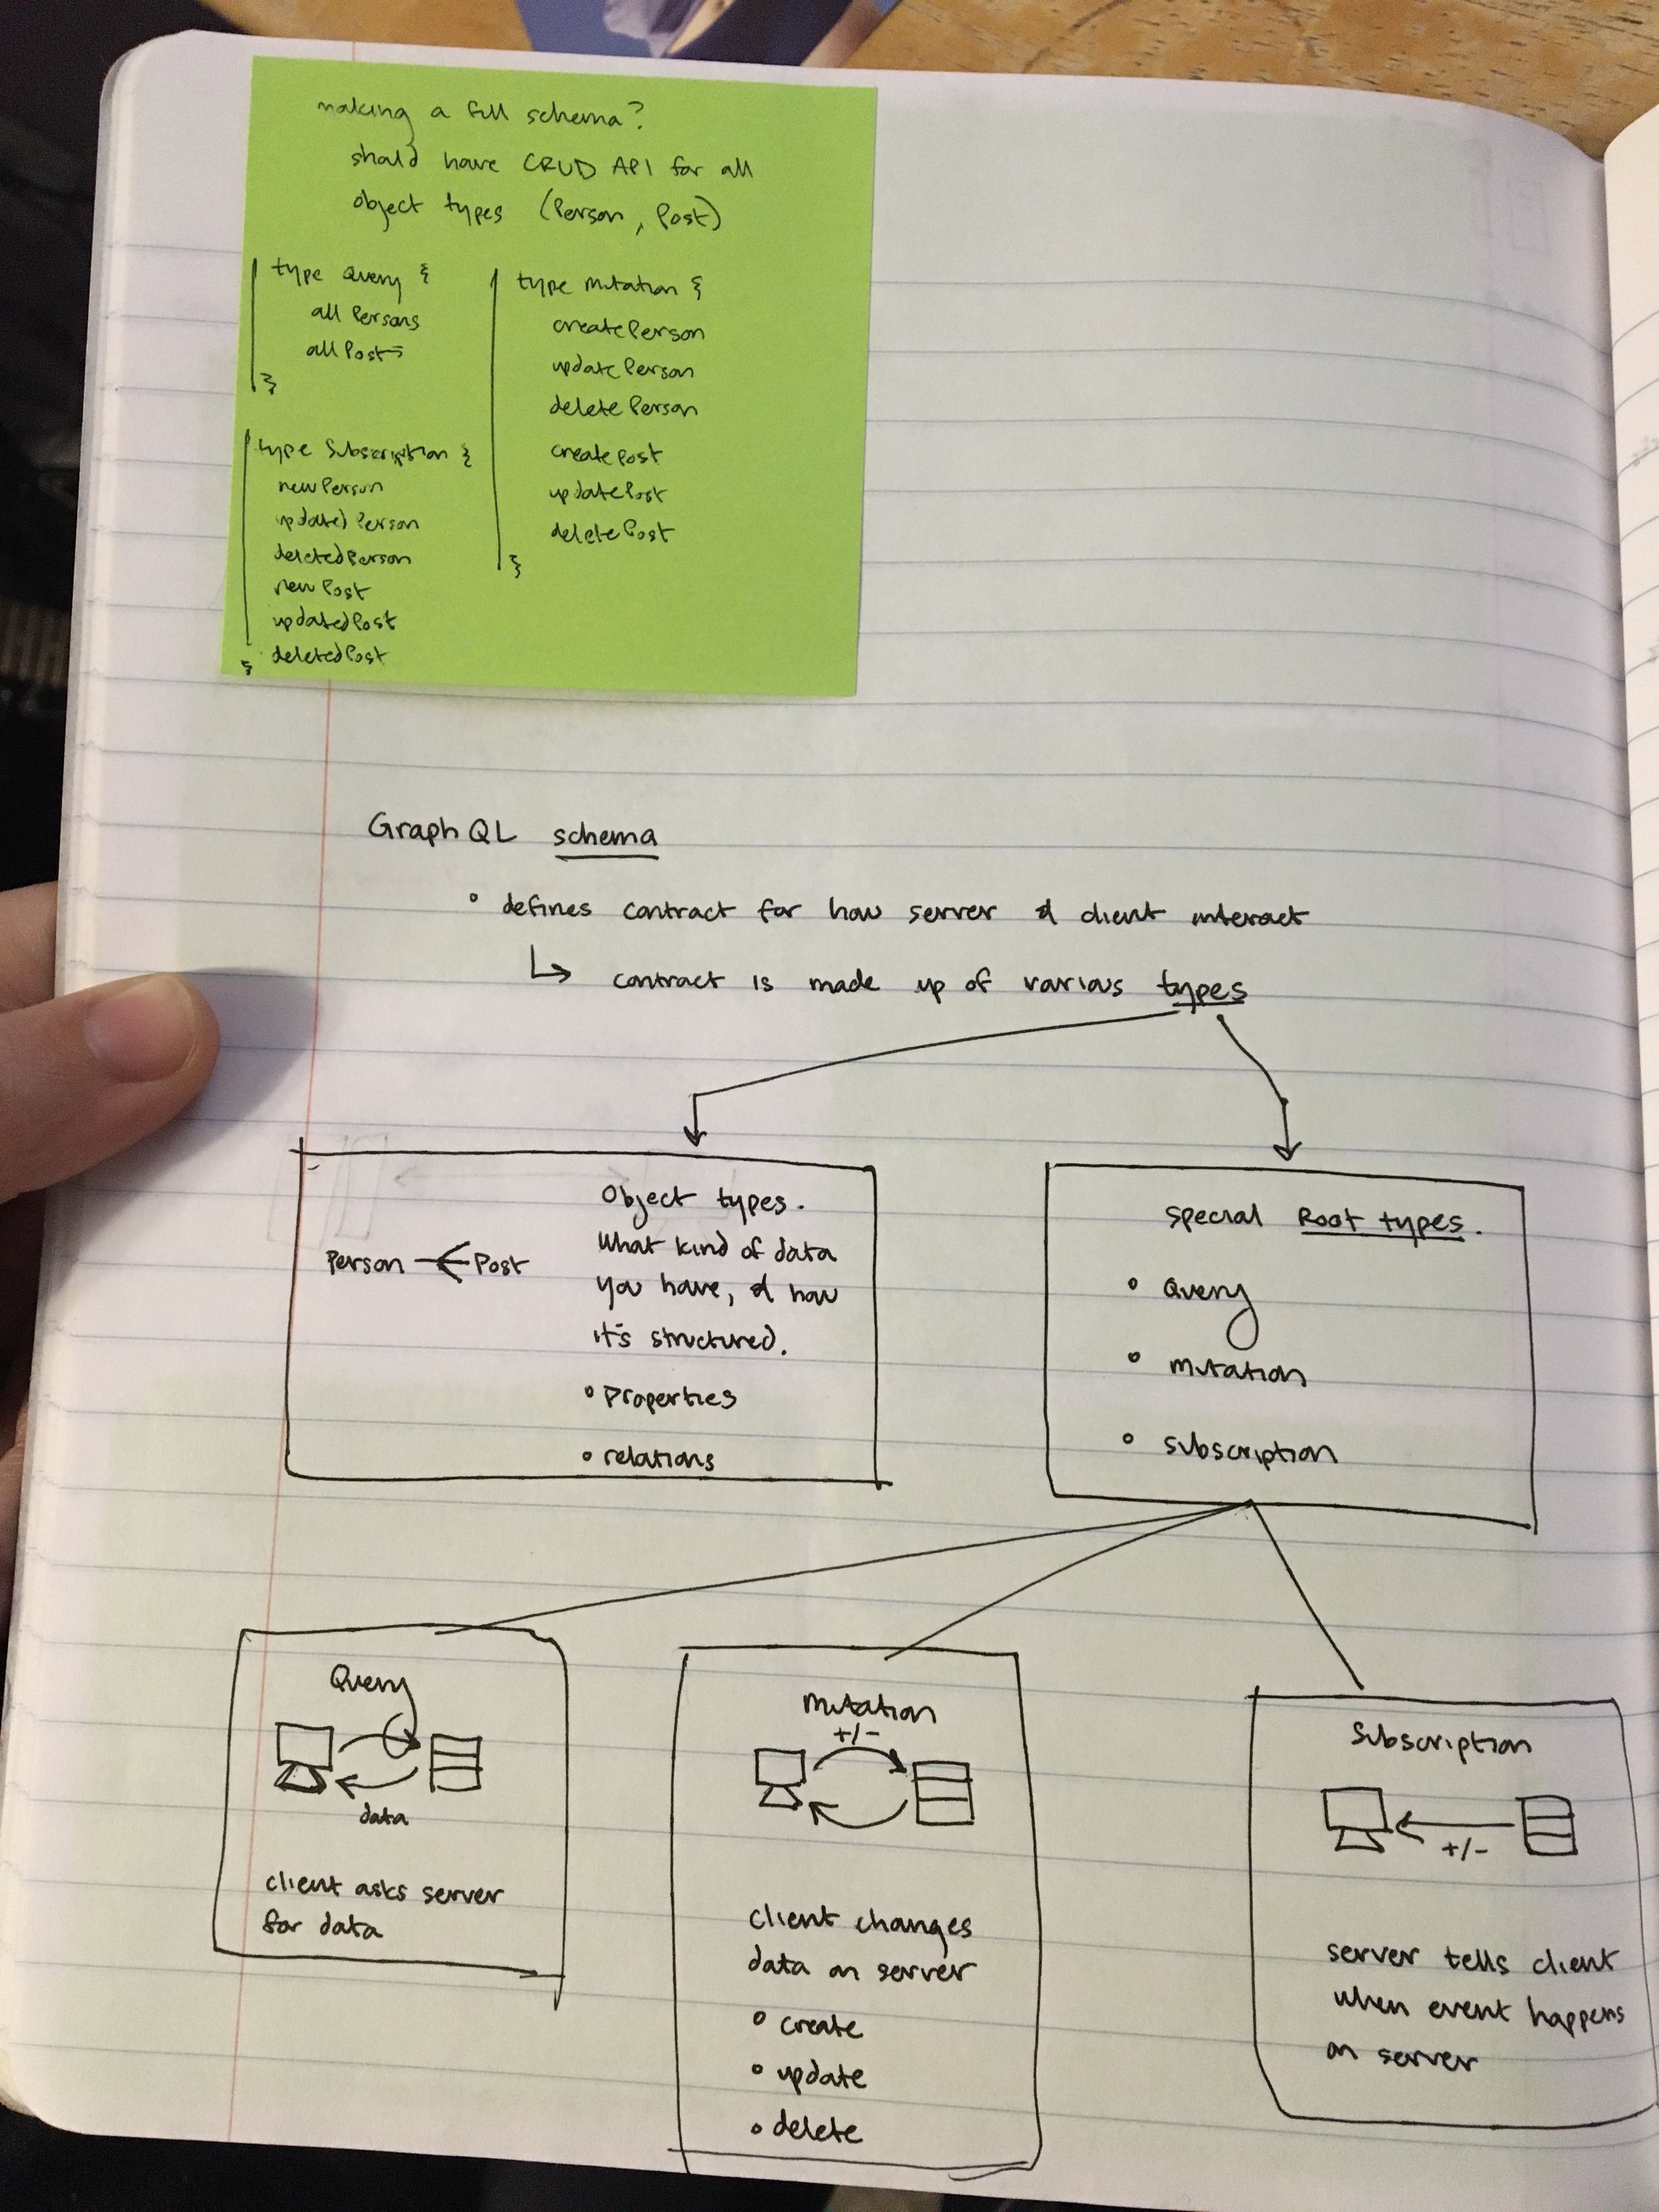 making a full schema?
should have CRUD API for all
object types (Person, Post)
type Query {
allPersons
allPosts
}
type Subscription {
newPerson
updatedPerson
deletedPerson
newPost
updatedPost
deletedPost
}
type Mutation {
createPerson
updatePerson
deletePerson
createPost
updatePost
deletePost
}
GraphQL schema
• defines contract for how server & client interact
↳ contract is made up of various types
Person Post
Object types.
What kind of data
you have, & how
it's structured.
• Properties
• relations
special Root types.
• Query
• mutation
• subscription
Query
data
client asks server
for data
mutation
+/-
client changes
data on server
• create
• update
• delete
Subscription
+/-
server tells client
when event happens
on server